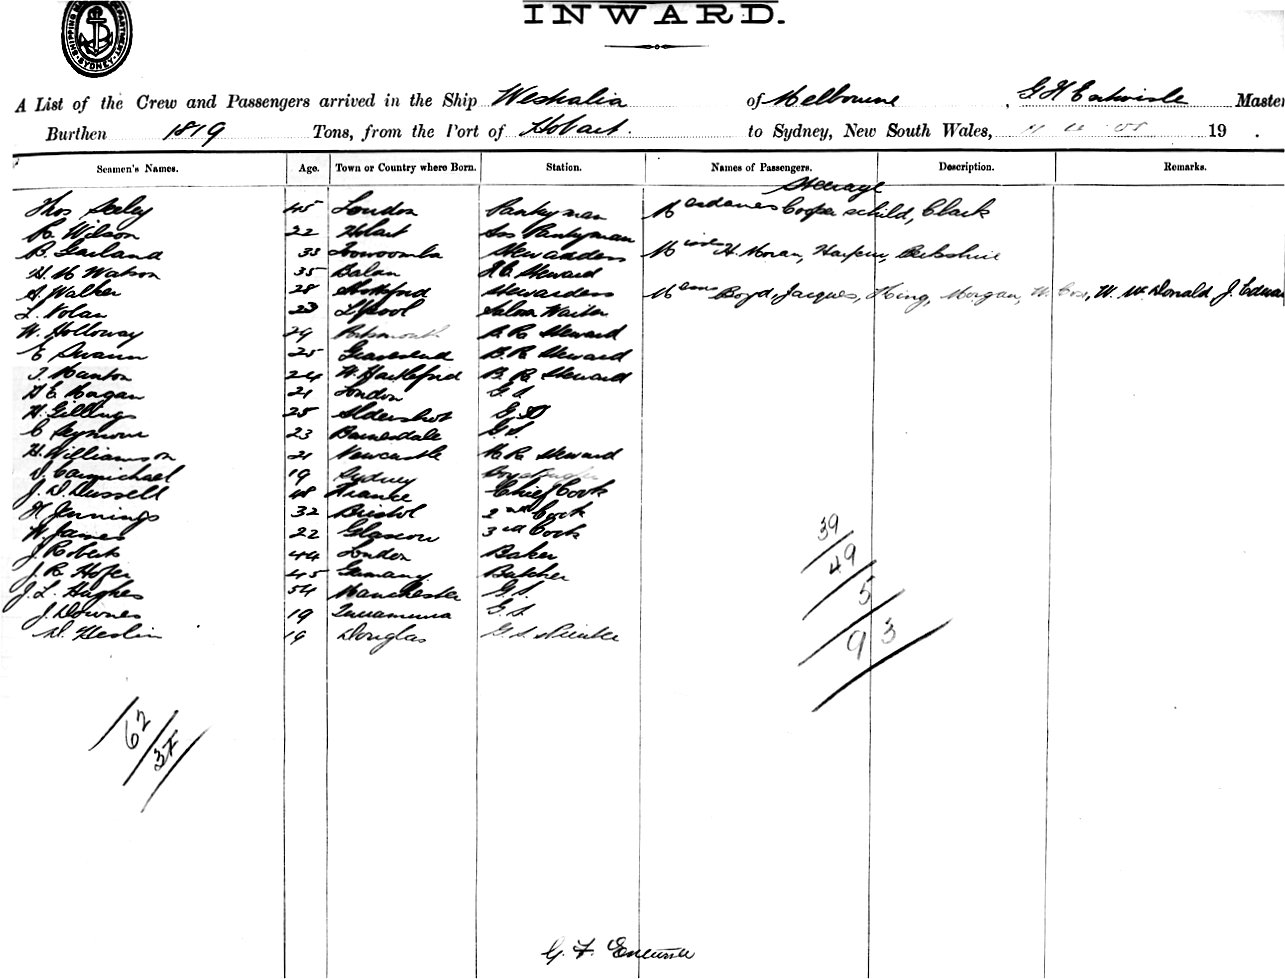 SHIPPING MASTER'S DEPARTMENT SYDNEY
INWARD.
A List of the Crew and Passengers arrived in the Ship Westralia of Melbourne, G H Entwisle Master
Burthen 1819 Tons, from the Port of Hobart. to Sydney, New South Wales, 19 .
Seamen's Names. Age. Town or Country where Born. Station. Names of Passengers. Description. Remarks.
Steerage
Thos Seeley 45 London Pantryman Mesdames Cooper, Schild, Clark
R Wilson 22 Hobart Ass Pantryman
B. Garland 33 Toowoomba Stewardess Misses H. Moran, Harper, Berkshire
H. M Watson 35 Balan F.C. Steward
S. Walker 28 Stewardess Mem Boyd, Jacques, King, Morgan, W. Cox, W. McDonald J. Edwa
L. Nolan 23 L'pool Saloon Waiter
W. Holloway 29 Portsmouth B. R. Steward
E Swann 25 Gravesend B. R. Steward
T. Manton 24 W. Hartleford B. R. Steward
H E. Hogan 21 London G. S.
H. Gillings 25 Aldershot G. S
C Seymour 23 Bairnsdale G. S.
H. Williamson 21 Newcastle M. R. Steward
D. Carmichael 19 Sydney
J. D. Dussell 48 France Chief Cook
H Jennings 32 Bristol 2nd Cook
W. James 22 Glasgow 3rd Cook
J. Roberts 44 London Baker
J. R. Hofer 45 Germany Butcher
J. L. Hughes 54 Manchester G. S.
J. Downes 19 G. S.
D. Heslin 19 Douglas G. S.
39
49
5
93
62
37
G. H. Entwisle